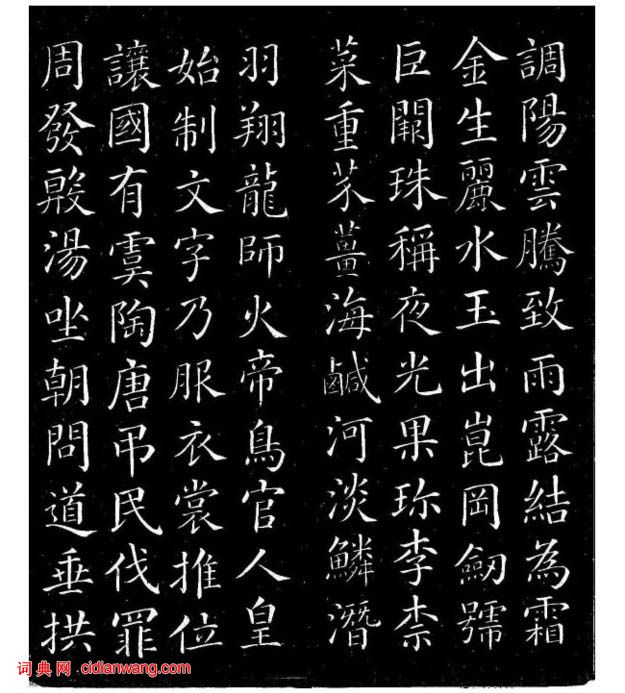 調陽雲騰致雨露結為霜
金生麗水玉出崑岡劒號
巨闕珠稱夜光果珎李柰
菜重芥薑海鹹河淡鱗潛
羽翔龍師火帝鳥官人皇
始制文字乃服衣裳推位
讓國有虞陶唐弔民伐罪
周發殷湯坐朝問道垂拱
词典网:cidianwang.com